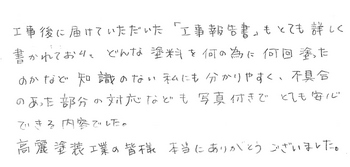 工事後に届けていただいた「工事報告書」もとても詳しく
書かれており、どんな塗料を何の為に何回塗った
のかなど知識のない私にも分かりやすく、不具合
のあった部分の対応なども写真付きでとても安心
できる内容でした。
高麗塗装工業の皆様 本当にありがとうございました。